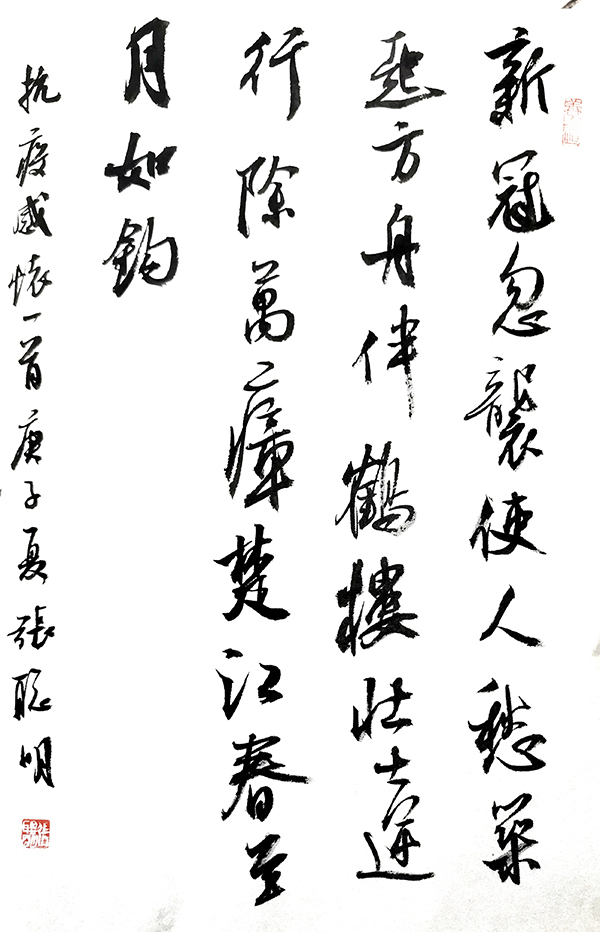 新冠忽襲使人愁築
起方舟伴鶴樓壯士逆
行除萬瘴楚江春至
月如鈎
抗疫感懷一首庚子夏張聰明